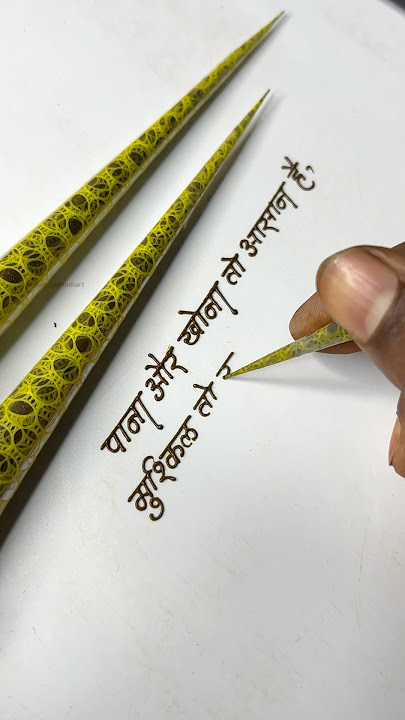 पाना और खोना तो आसान है,
मुश्किल तो र